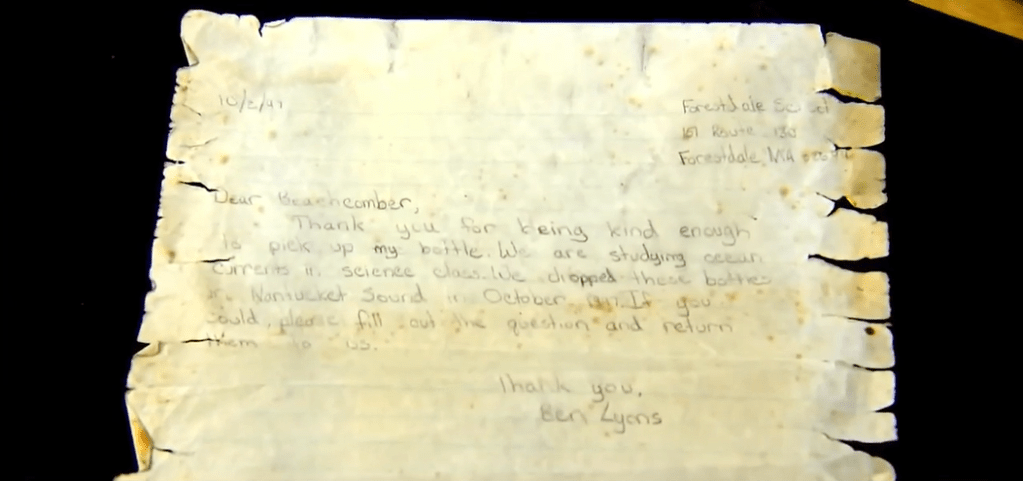 10/2/97
Forestdale School
151 Route 130
Forestdale, MA
Dear Beachcomber,
Thank you for being kind enough
to pick up my bottle. We are studying ocean
currents in science class. We dropped these bottles
in Nantucket Sound in October 1997. If you
could, please fill out the question and return
them to us.
Thank you,
Ben Lyons